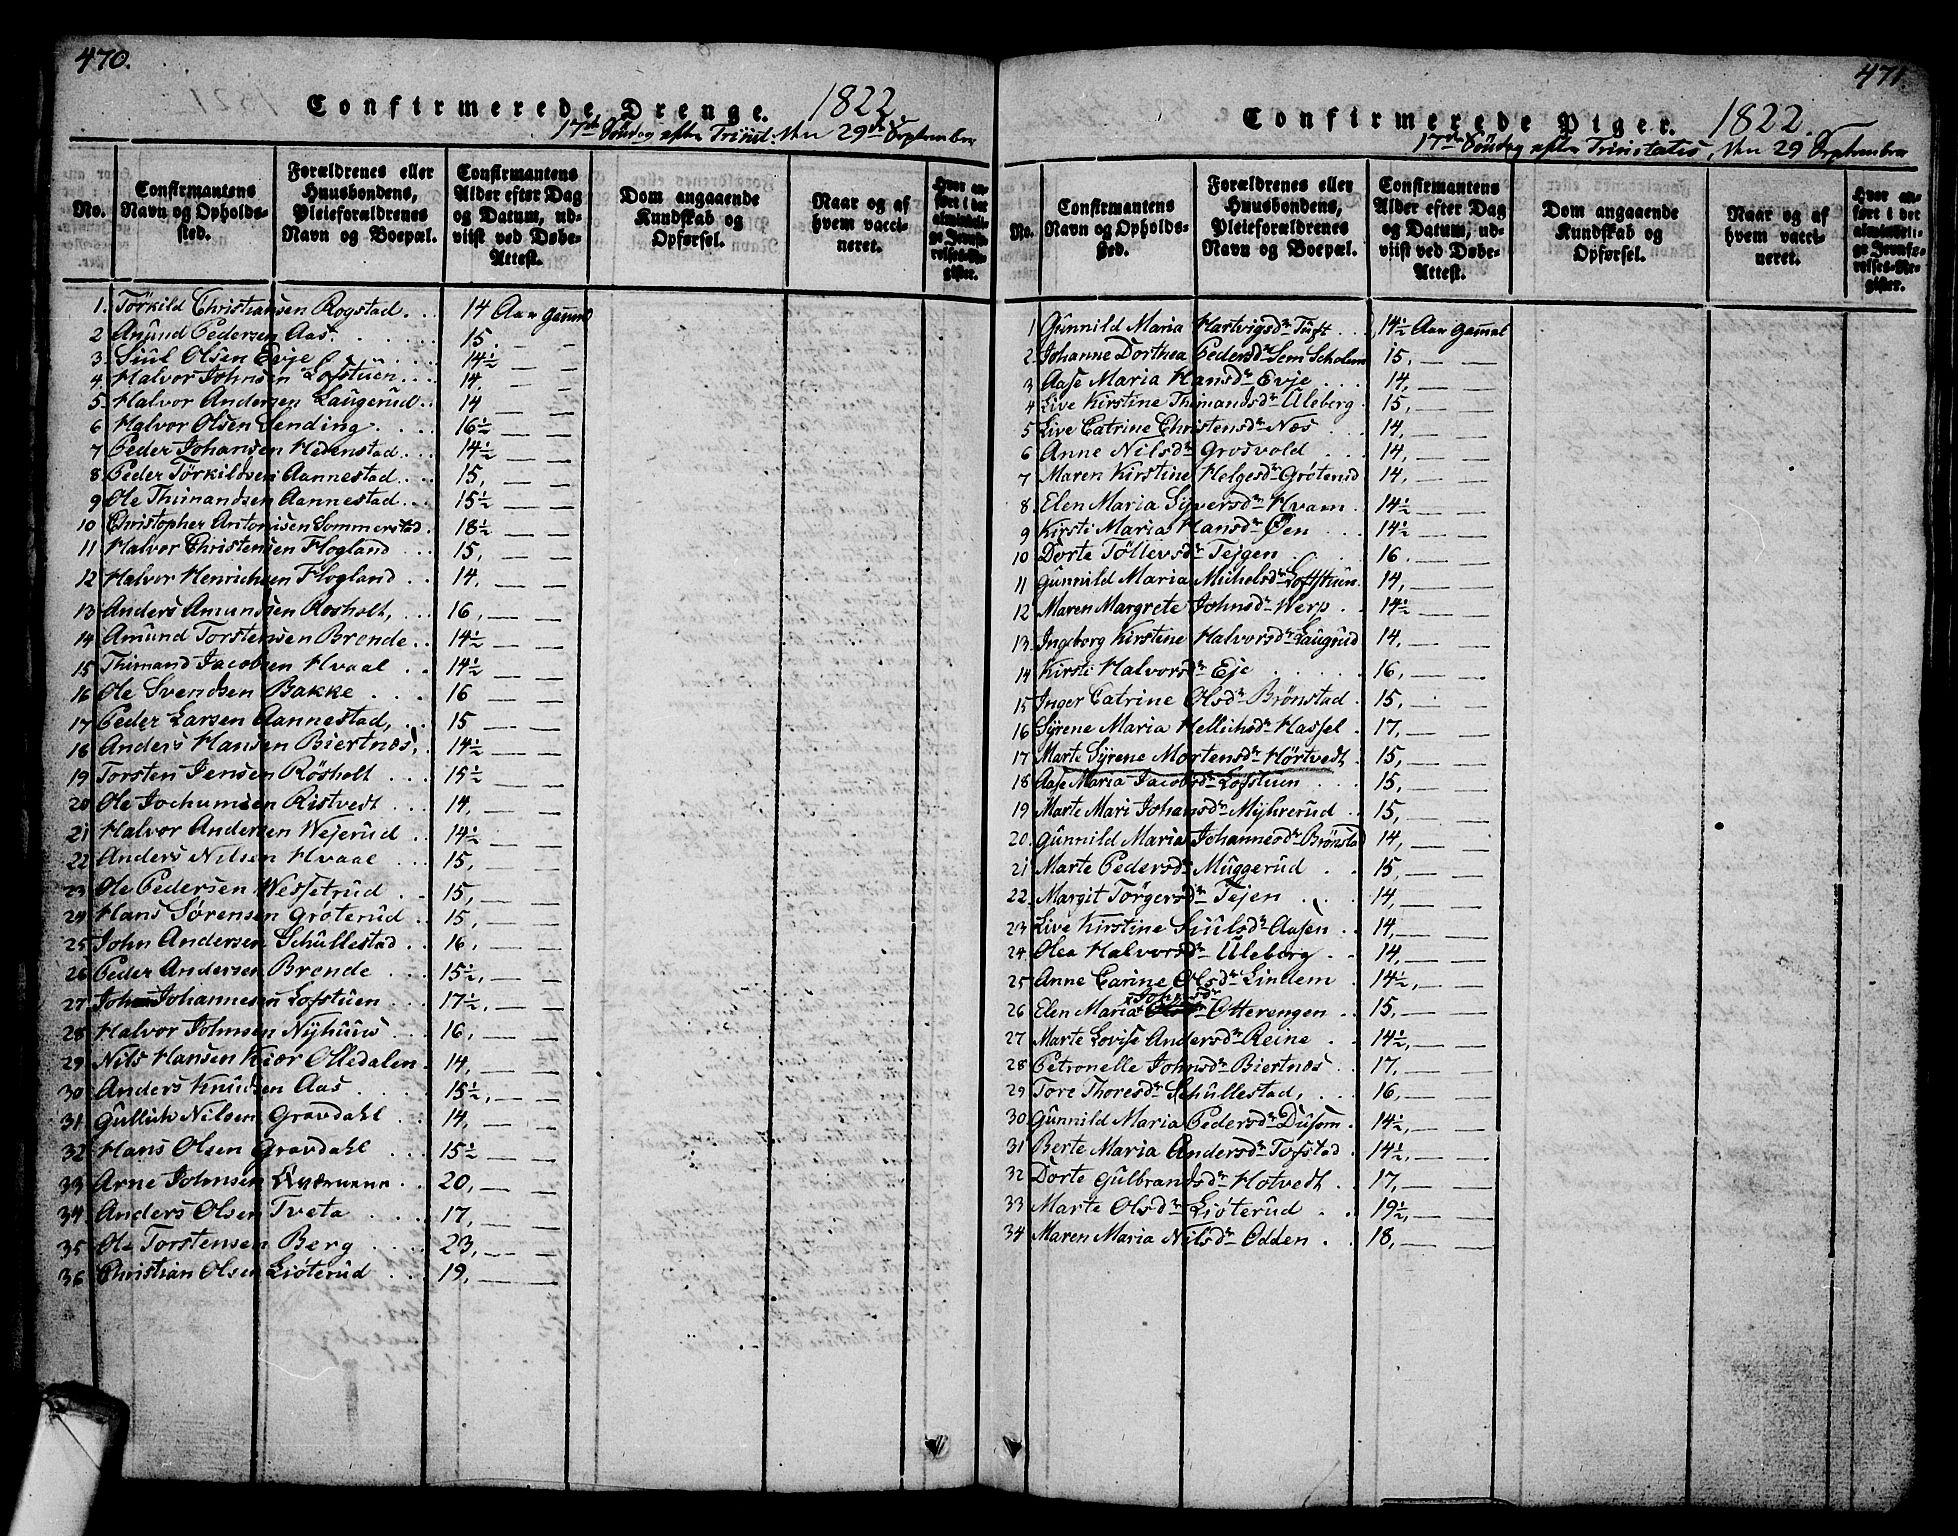 470.
Confirmerede Drenge. 1822
17de Søndag efter Trinit. den 29de September
No.
Confirmantens Navn og Opholds-sted.
Forældrenes eller Huusbondens, Pleieforældrenes Navn og Boepæl.
Confirmantens Alder efter Dag og Datum, ud-viist ved Døbe-Attest.
Dom angaaende Kundskab og Opførsel.
Naar og af hvem vacci-neret.
Hvor an-ført i det almindeli-ge Jevnfø-relses-Re-gister.
1. Törkild Christiansen Rogstad. 14 Aar gamel
2 Amund Pedersen Aas. 15. — —
3 Siul Olsen Evje 14½ — —
4 Halvor Johnsen Lofstuen. 14. — —
5. Halvor Andersen Laugerud 14 — —
6 Halvor Olsen Lending. 16½ — —
7 Peder Johansen Hedenstad. 14½ — —
8 Peder Törkildsen Aannestad. 15, — —
9 Ole Thimandsen Aannestad. 15½ — —
10 Christopher Antonisen Sommerstad. 18½ — —
11 Halvor Christensen Flogland 15, — —
12 Halvor Henrichsen Flogland 14, — —
13 Anders Amundsen Rosholt, 16, — —
14 Amund Torstensen Brende. 14½ — —
15 Thimand Jacobsen Hvaal 14½ — —
16 Ole Svendsen Bakke 16 — —
17 Peder Larsen Aannestad, 15 — —
18 Anders Hansen Biertnæs, 14½ — —
19 Torsten Jensen Rösholt 15½ — —
20 Ole Jochumsen Ristvedt 14, — —
21 Halvor Andersen Wejerud 14½ — —
22 Anders Nilsen Hvaal 15, — —
23 Ole Pedersen Wessetrud 15, — —
24 Hans Sörensen Gröterud 15, — —
25 John Andersen Schullestad 16, — —
26 Peder Andersen Brende 15½, — —
27 Johannesen Lofstuen 17½, — —
28 Halvor Johnsen Nyhuus 16, — —
29 Nils Hansen Kiær Olledalen 14, — —
30 Anders Knudsen Aas 15½, — —
31 Gullich Nilsen Gravdahl 14, — —
32 Hans Olsen Gravdahl 15½ — —
33 Arne Johnsen 20, — —
34 Anders Olsen Tveta 17, — —
35 Ole Torstensen Berg 23, — —
36 Christian Olsen Liöterud 19, — —
471.
Confirmerede Piger. 1822.
17de Söndag efter Trinitatis, den 29 September
No.
Confirmantens Navn og Opholds-sted.
Forældrenes eller Huusbondens, Pleieforældrenes Navn og Boepæl.
Confirmantens Alder efter Dag og Datum, ud-viist ved Døbe-Attest.
Dom angaaende Kundskab og Opførsel.
Naar og af hvem vacci-neret.
Hvor an-ført i det almindeli-ge Jevnfø-relses-Re-gister.
1 Gunnild Maria Hartvigsdr Tuft 14½ Aar gamal
2. Johanne Dorthea Pedersdr Sem Scholen 15, — —
3 Aase Maria Hansdr Evje 14, — —
4 Live Kirstine Thimandsdr Uleberg. 15, — —
5 Live Catrine Christensdr Næs 14, — —
6 Anne Nilsdr Grosvold 14, — —
7 Maren Kirstine Helgesdr Gröterud 14, — —
8 Elen Maria Syversdr Hvam 14½ — —
9 Kirsti Maria Hansdr Öen 14½ — —
10 Dorte Töllevsdr Tejgen 16. — —
11 Gunnild Maria Michelsdr Lofthuen. 14, — —
12 Maren Margrete Johnsdr Werp 14½ — —
13 Ingeborg Kirstine Halvorsdr Laugrud 14, — —
14 Kirsti Halvorsdr Eje 16, — —
15 Inger Catrine Olsdr Brönstad 15, — —
16 Syrene Maria Hellichsdr Hassel 17, — —
17 Marte Syrene Mortensdr Hörtvedt 15, — —
18 Aase Maria Jacobsdr Lofstuen 15, — —
19 Marte Mari Johansdr Myhrerud 15, — —
20. Gunnild Maria Johannesdr Brönstad 14, — —
21 Marte Pedersdr Muggerud 15, — —
22 Margit Törgersdr Tejen 14, — —
23 Live Kirstine Siulsdr Aasen 14, — —
24 Olea Halvorsdr Uleberg 14, — —
25 Anne Carine Olsdr Lindem 14½, — —
26 Elen Maria Johnsdr Otterengen 15, — —
27 Marte Lovise Andersdr Reine 14½, — —
28 Petronelle Johnsdr Biertnæs 17, — —
29 Tore Thoresdr Schullestad, 16, — —
30 Gunnild Maria Pedersdr Dusom 14½ — —
31 Berte Maria Andersdr Tofstad 14½, — —
32 Dorte Gulbrandsdr Hotvedt 17, — —
33 Marte Olsdr Liöterud 19½, — —
34 Maren Maria Nilsdr Odden 18, — —